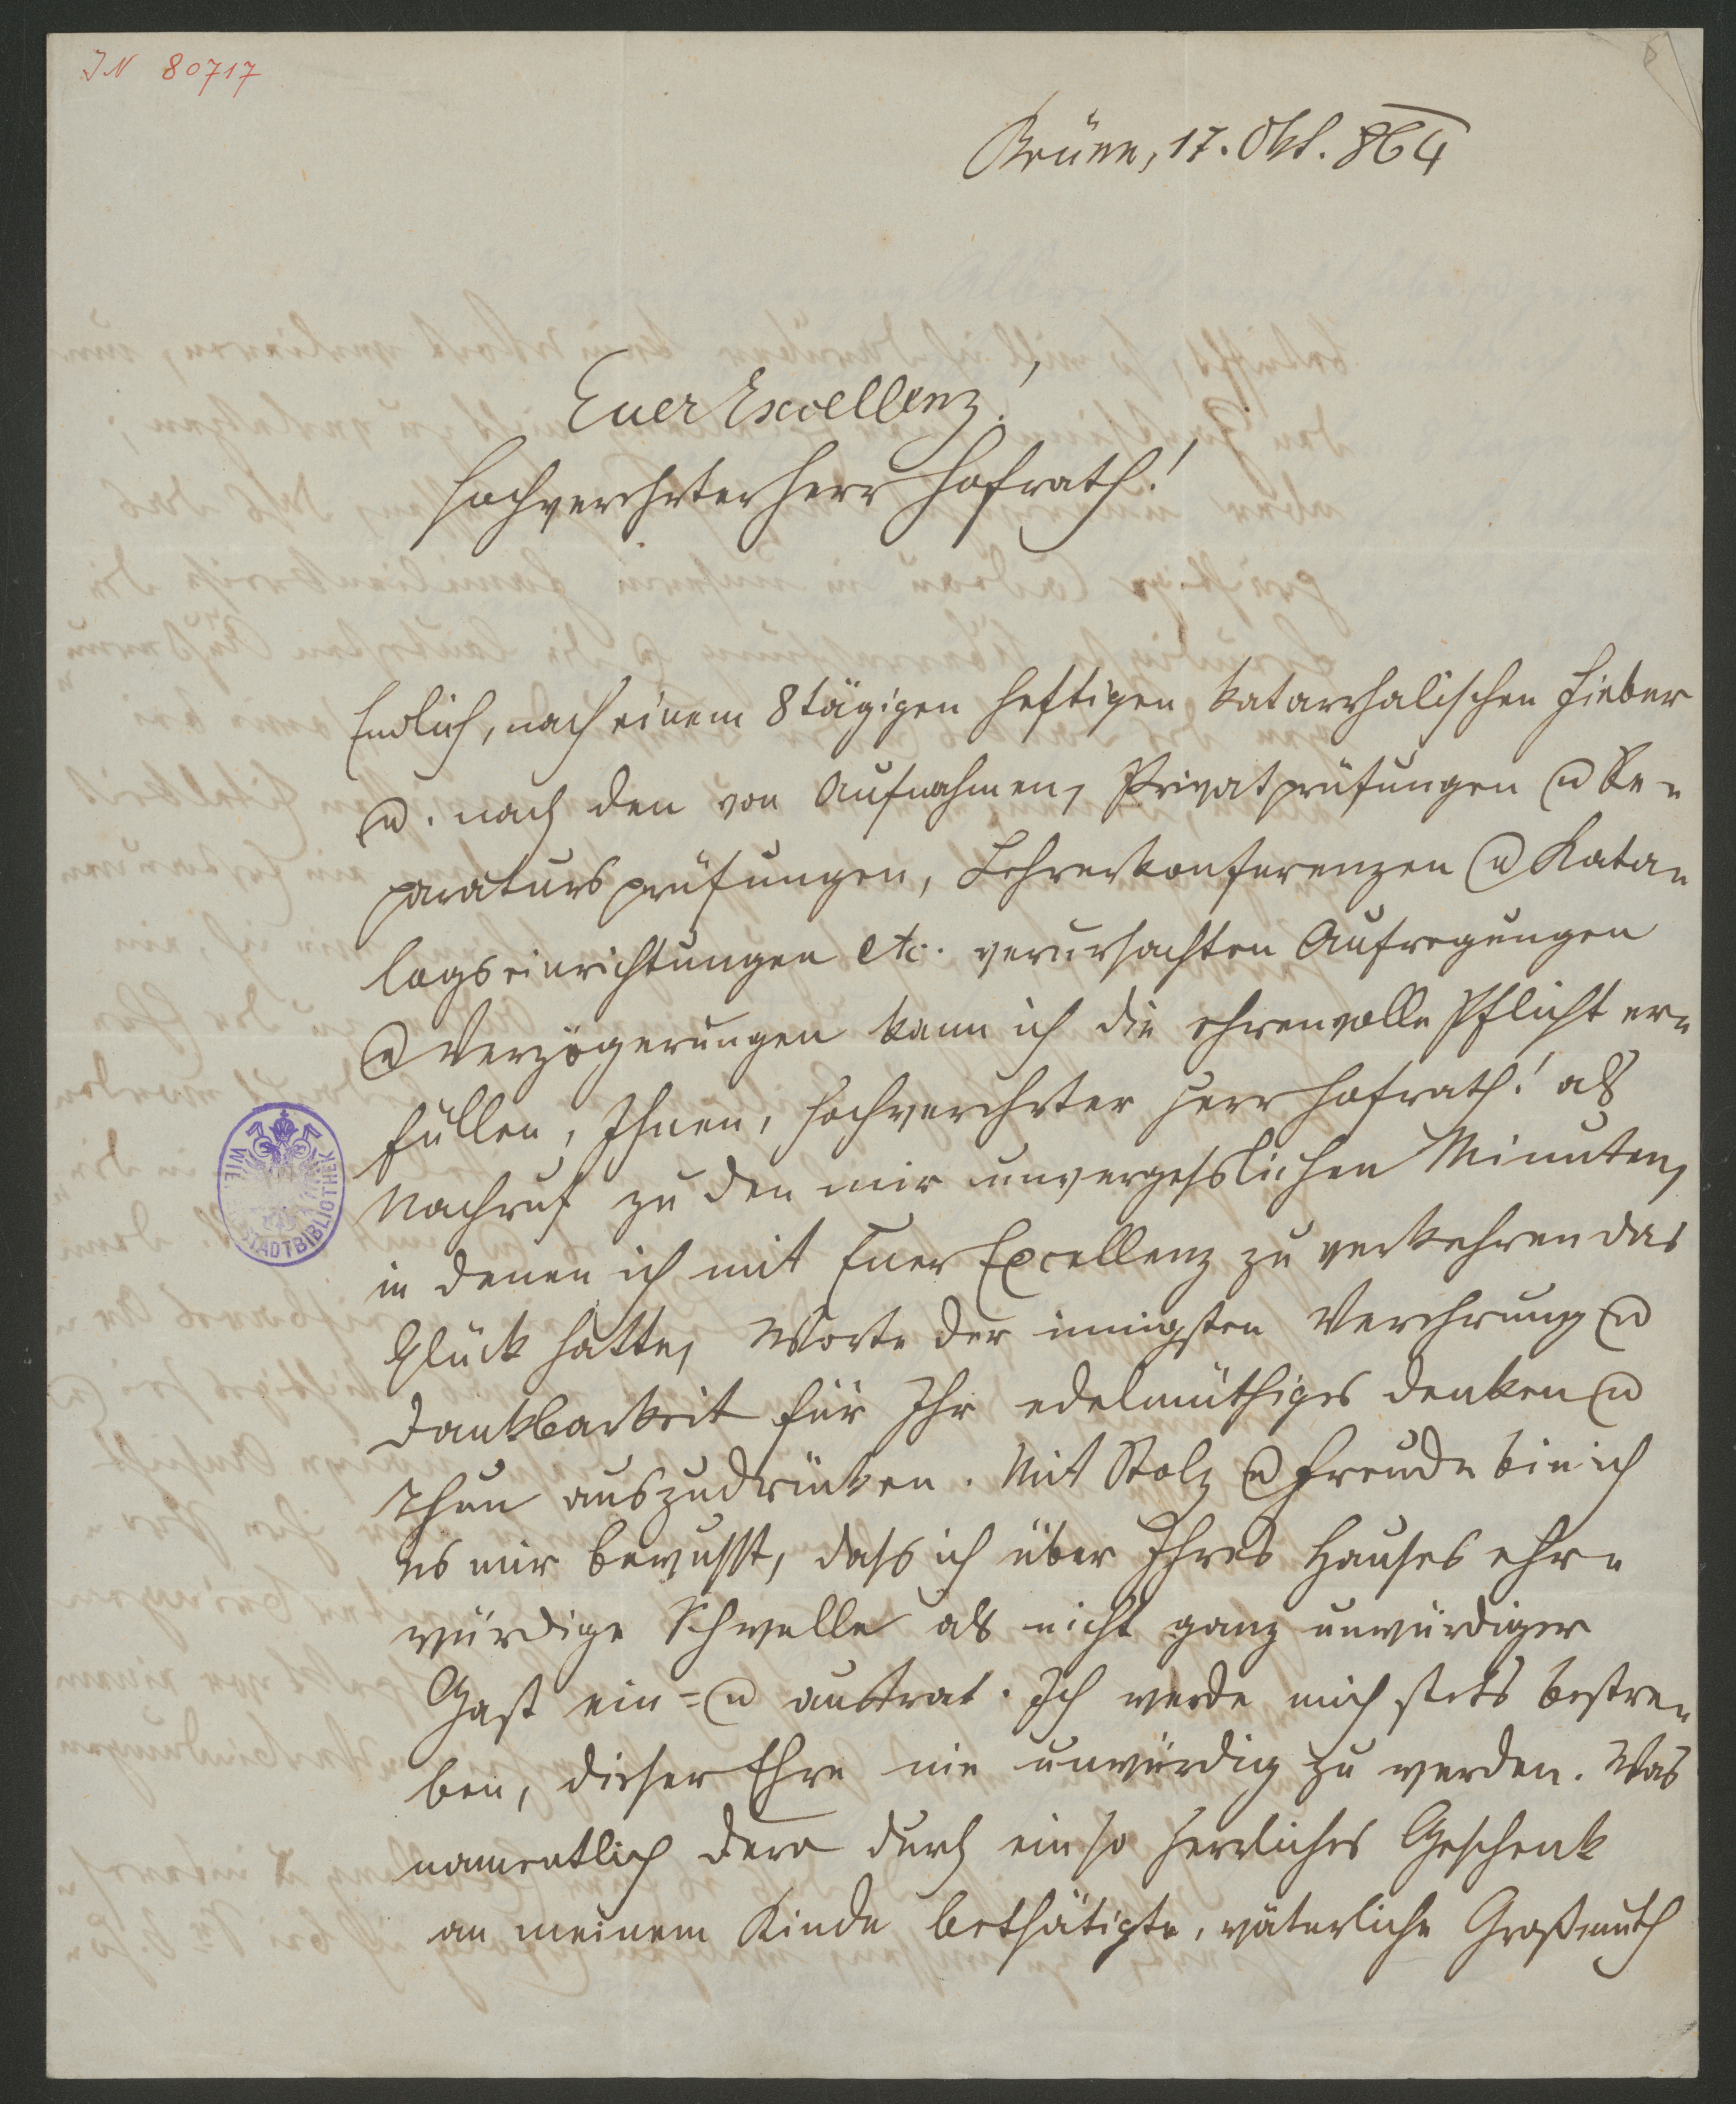 IN 80717
8
Brünn, 17. Okt. 864
Euer Excellenz!
Hochverehrter Herr Hofrath!
Endlich, nach einem 8tägigen heftigen katarrhalischen Fieber
u. nach den von Aufnahmen, Privatprüfungen u Re-
paratursprüfungen, Lehrerkonferenzen u Kata-
logseinrichtungen etc. verursachten Aufregungen
u Verzögerungen kann ich die ehrenvolle Pflicht er-
füllen, Ihnen, hochverehrter Herr Hofrath! als
Nachruf zu den mir unvergesslichen Minuten,
in denen ich mit Euer Excellenz zu verkehren das
Glück hatte, Worte der innigsten Verehrung u
Dankbarkeit für Ihr edelmüthiges Denken u
Thun auszudrücken. Mit Stolz u Freude bin ich
es mir bewusst, dass ich über Ihres Hauses ehr-
würdige Schwelle als nicht ganz unwürdiger
Gast ein= u austrat. Ich werde mich stets bestre-
ben, dieser Ehre nie unwürdig zu werden. Was
namentlich dero durch ein so herrliches Geschenk
an meinem Kinde bethätigte, väterliche Großmuth
WIENER STADTBIBLIOTHEK